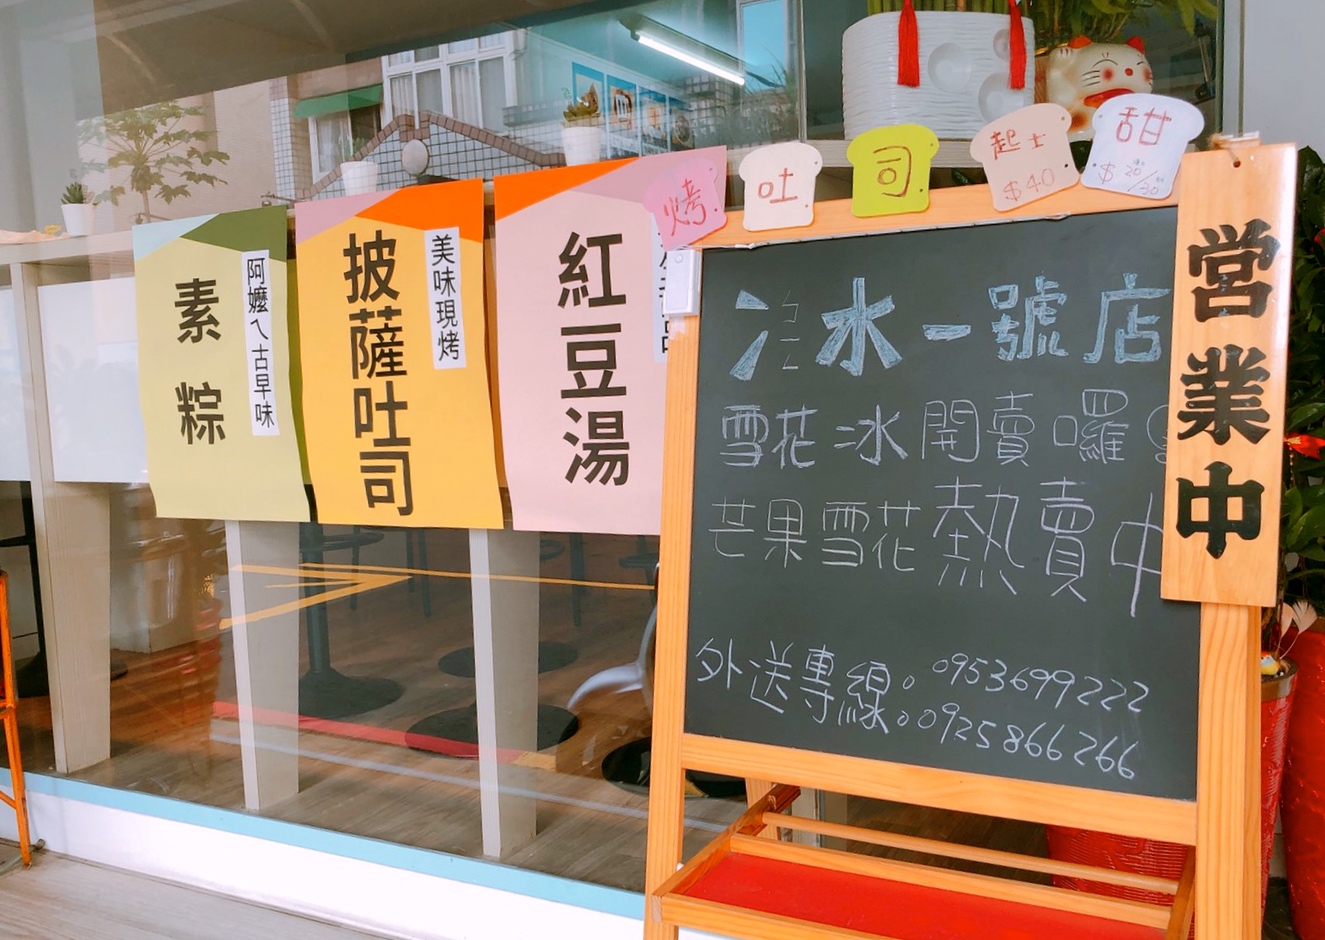 素粽
阿嬤ㄟ古早味
披薩吐司
美味現烤
紅豆湯
烤吐司
起士
$40
甜
$20/30
冰水一號店
雪花冰開賣囉
芒果雪花熱賣中
外送專線:0953699222
:0925866266
営業中